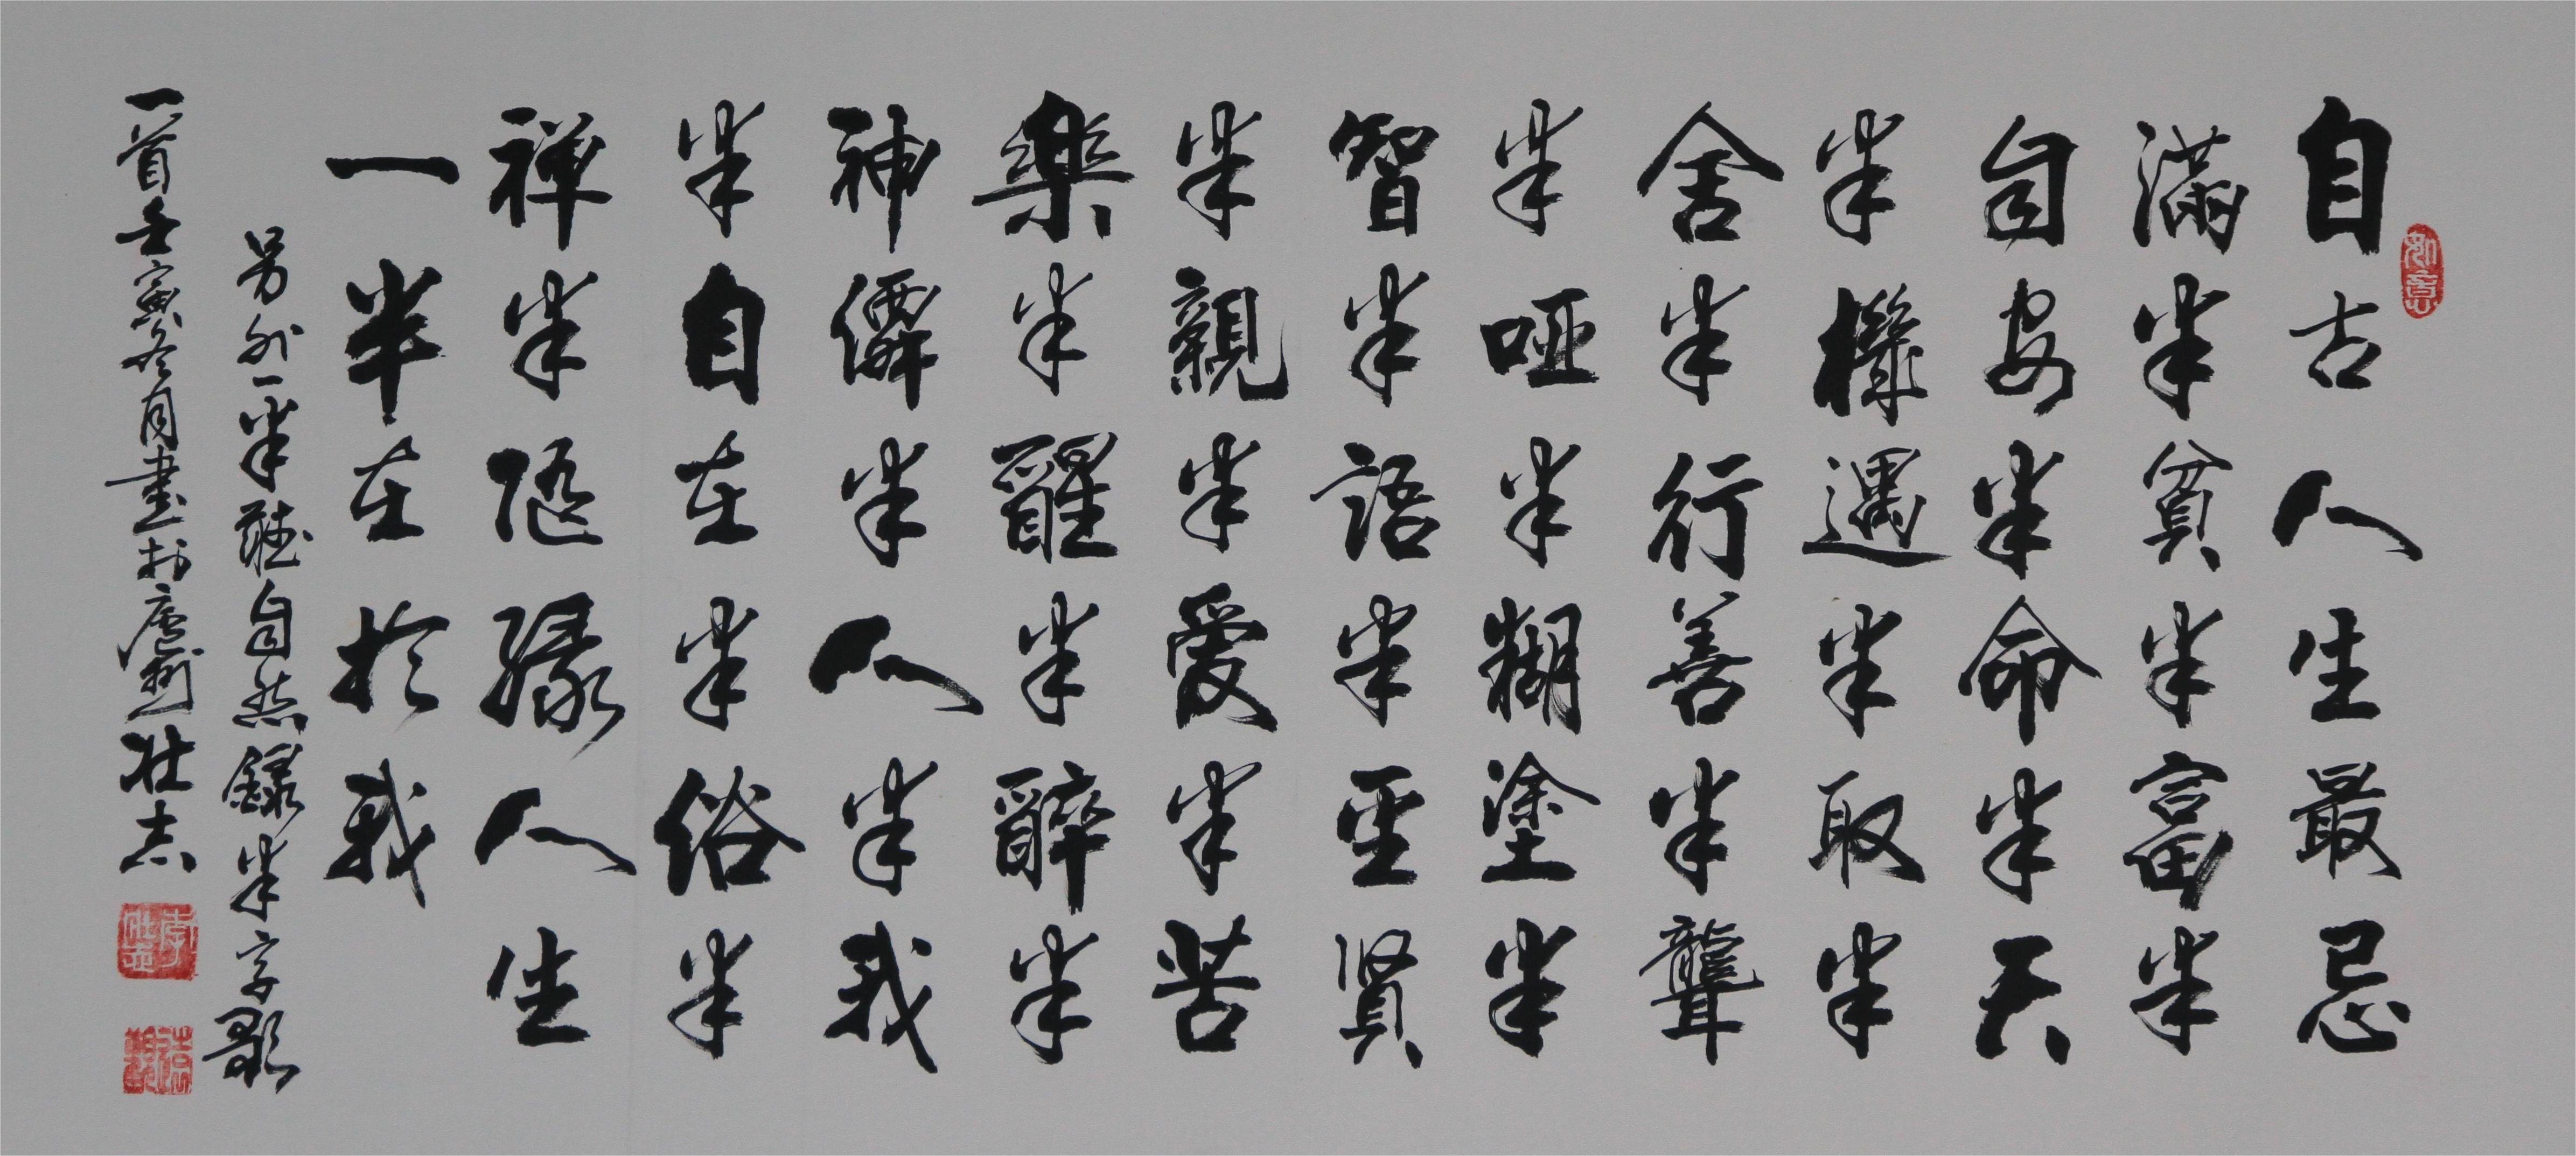 自古人生最忌
滿半貧半富半
自安半命半天
半機遇半取半
舍半行善半聾
半啞半糊塗半
智半語半聖賢
半親半愛半苦
樂半醒半醉半
神僊半人半我
半自在半俗半
禅半随緣人生
一半在於我
另外一半聽自然錄半字歌
一首壬寅冬月書於廬州壮志
如意
李壮志